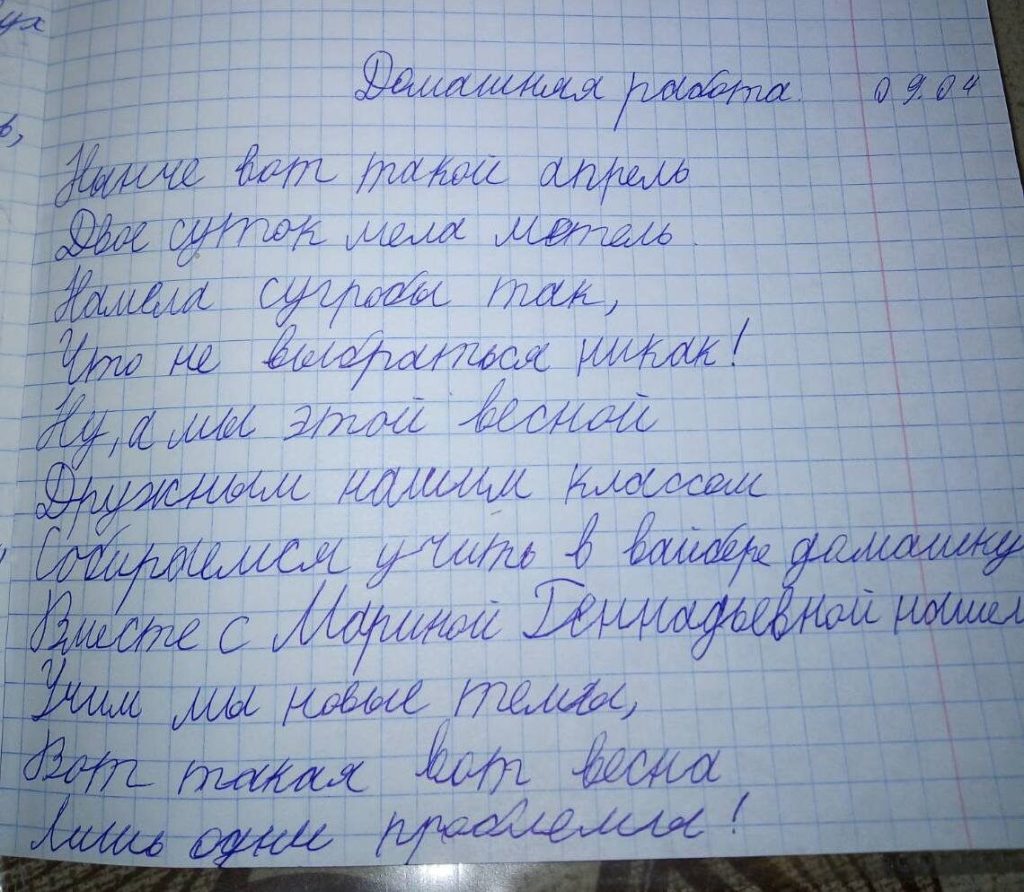 ух
в,
Домашняя работа. 09.04
Нынче вот такой апрель
Двое суток мела метель.
Намела сугробы так,
Что не выбраться никак!
Ну, а мы этой весной
Дружным нашим классом
Собираемся учить в вайбере домашну
Вместе с Мариной Геннадьевной нашей
Учим мы новые темы,
Вот такая вот весна
Лишь одни проблемы!